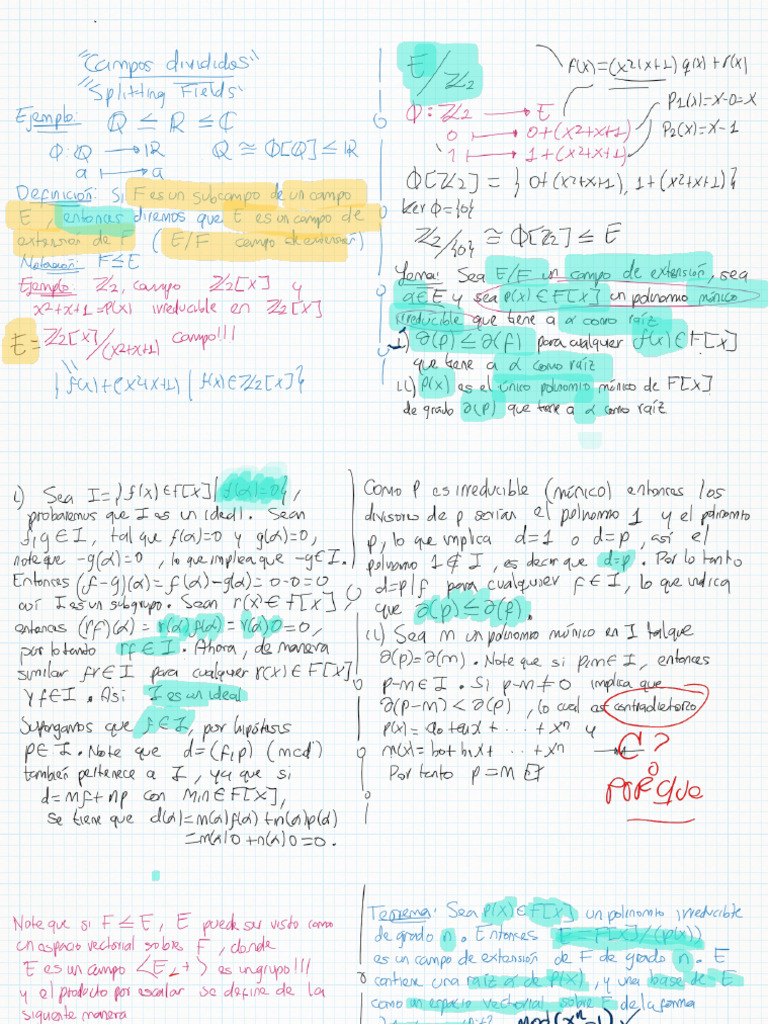 "Campos divididos"
"Splitting Fields"
Ejemplo: ℚ ≤ ℝ ≤ ℂ
Φ: ℚ → ℝ ℚ ≅ Φ[ℚ] ≤ ℝ
a ↦ a
Definición: Si F es un subcampo de un campo
E, entonces diremos que E es un campo de
extensión de F (E/F campo de extensión)
Notación: F≤E
Ejemplo: ℤ₂, campo ℤ₂[x] y
x²+x+1=p(x) irreducible en ℤ₂[x]
E=ℤ₂[x]/(x²+x+1) campo!!!
{f(x)+(x²+x+1) | f(x)∈ℤ₂[x]}
E/ℤ₂
f(x)=(x²+x+1)q(x)+r(x)
Φ: ℤ₂ → E
P₁(x)=x-0=x
0 ↦ 0+(x²+x+1)
P₂(x)=x-1
1 ↦ 1+(x²+x+1)
Φ[ℤ₂]={0+(x²+x+1), 1+(x²+x+1)}
ker Φ={0}
ℤ₂/{0} ≅ Φ[ℤ₂] ≤ E
Lema: Sea E/F un campo de extensión, sea
α∈E y sea p(x)∈F[x] un polinomio mónico
irreducible que tiene a α como raíz
i) ∂(p)≤∂(f) para cualquier f(x)∈F[x]
que tiene a α como raíz
ii) p(x) es el único polinomio mónico de F[x]
de grado ∂(p) que tiene a α como raíz
i) Sea I={f(x)∈F[x]| f(α)=0},
probaremos que I es un ideal. Sean
f,g∈I, tal que f(α)=0 y g(α)=0,
note que -g(α)=0, lo que implica que -g∈I.
Entonces (f-g)(α)=f(α)-g(α)=0-0=0
así I es un subgrupo. Sean r(x)∈F[x],
entonces (rf)(α)=r(α)f(α)=r(α)0=0,
por lo tanto rf∈I. Ahora, de manera
similar fr∈I para cualquier r(x)∈F[x]
y f∈I. Así I es un ideal
Supongamos que f∈I, por hipótesis
p∈I. Note que d=(f,p) (mcd)
también pertenece a I, ya que si
d=mf+np con m,n∈F[x],
se tiene que d(α)=m(α)f(α)+n(α)p(α)
=m(α)0+n(α)0=0.
Como p es irreducible (mónico) entonces los
divisores de p serían el polinomio 1 y el polinomio
p, lo que implica d=1 o d=p, así el
polinomio 1∉I, es decir que d=p. Por lo tanto
d=p|f para cualquier f∈I, lo que indica
que ∂(p)≤∂(f).
ii) Sea m un polinomio mónico en I tal que
∂(p)=∂(m). Note que si p,m∈I, entonces
p-m∈I. Si p-m≠0 implica que
∂(p-m)<∂(p), lo cual es contradictorio
p(x)=a₀+a₁x+...+xⁿ y
m(x)=b₀+b₁x+...+xⁿ
Por tanto p=m
¿?
POR QUE
Note que si F≤E, E puede ser visto como
un espacio vectorial sobre F, donde
E es un campo <E,+> es un grupo!!!
y el producto por escalar se define de la
siguiente manera
Teorema: Sea p(x)∈F[x] un polinomio irreducible
de grado n. Entonces E=F[x]/(p(x))
es un campo de extensión de F de grado n. E
contiene una raíz α de p(x), y una base de E
como un espacio vectorial sobre F de la forma